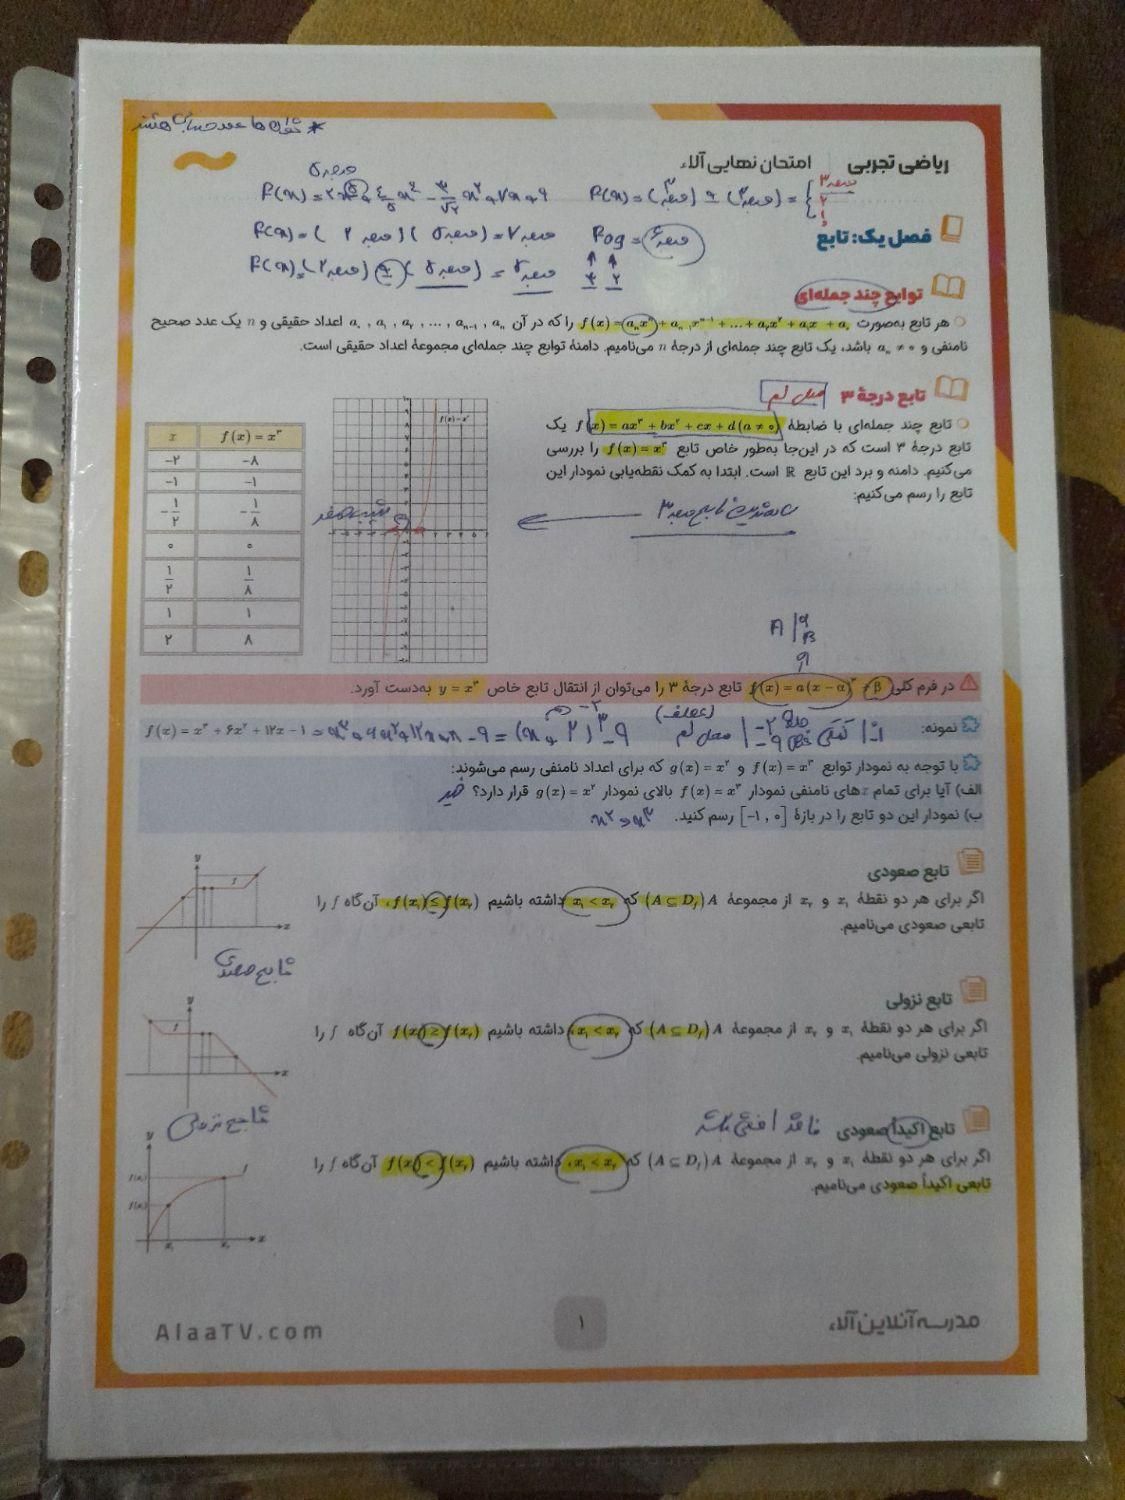 * توان ها عدد حسابی هستند
ریاضی تجربی | امتحان نهایی آلاء
فصل یک: تابع
توابع چند جمله‌ای
هر تابع به‌صورت f(x) = aₙxⁿ + aₙ₋₁xⁿ⁻¹ + ... + a₂x² + a₁x + a₀ را که در آن a₀ , a₁ , a₂ , ... , aₙ₋₁ , aₙ اعداد حقیقی و n یک عدد صحیح
نامنفی و aₙ ≠ ۰ باشد، یک تابع چند جمله‌ای از درجهٔ n می‌نامیم. دامنهٔ توابع چند جمله‌ای مجموعهٔ اعداد حقیقی است.
تابع درجهٔ ۳
تابع چند جمله‌ای با ضابطهٔ f(x) = ax³ + bx² + cx + d (a ≠ ۰) یک
تابع درجهٔ ۳ است که در این‌جا به‌طور خاص تابع f(x) = x³ را بررسی
می‌کنیم. دامنه و برد این تابع ℝ است. ابتدا به کمک نقطه‌یابی نمودار این
تابع را رسم می‌کنیم:
f(x) = x³
x | f(x) = x³
-۲ | -۸
-۱ | -۱
-۱/۲ | -۱/۸
۰ | ۰
۱/۲ | ۱/۸
۱ | ۱
۲ | ۸
در فرم کلی f(x) = a(x − α)³ + β تابع درجهٔ ۳ را می‌توان از انتقال تابع خاص y = x³ به‌دست آورد.
نمونه: f(x) = x³ + ۶x² + ۱۲x − ۱
با توجه به نمودار توابع f(x) = x³ و g(x) = x² که برای اعداد نامنفی رسم می‌شوند:
الف) آیا برای تمام xهای نامنفی نمودار f(x) = x³ بالای نمودار g(x) = x² قرار دارد؟ خیر
ب) نمودار این دو تابع را در بازهٔ [-۱, ۰] رسم کنید.
تابع صعودی
اگر برای هر دو نقطهٔ x₁ و x₂ از مجموعهٔ A (A ⊆ D_f) که x₁ < x₂ داشته باشیم f(x₁) ≤ f(x₂)، آن‌گاه f را
تابعی صعودی می‌نامیم.
تابع صعودی
تابع نزولی
اگر برای هر دو نقطهٔ x₁ و x₂ از مجموعهٔ A (A ⊆ D_f) که x₁ < x₂، داشته باشیم f(x₁) ≥ f(x₂) آن‌گاه f را
تابعی نزولی می‌نامیم.
تابع نزولی
تابع اکیداً صعودی فاقد افقی باشد
اگر برای هر دو نقطهٔ x₁ و x₂ از مجموعهٔ A (A ⊆ D_f) که x₁ < x₂، داشته باشیم f(x₁) < f(x₂) آن‌گاه f را
تابعی اکیداً صعودی می‌نامیم.
مدرسه آنلاین آلاء
۱
AlaaTV.com